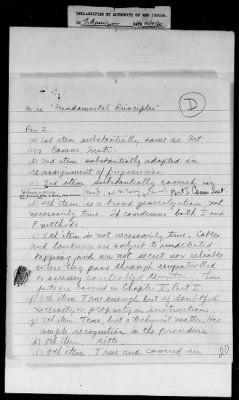 DECLASSIFIED BY AUTHORITY OF
D
In re "Fundamental Principles"
Par 2.
1st item substantially same as Art
1102 Comm. Inst.
(b) 2nd item substantially adopted in
re assignment of frequencies.
(c) 3rd item substantially covered in
Part 3 Comm. Inst.
(d) 4th item is a broad generalization not
necessarily true. It condemns both I and
F methods
(e) 5th item is not necessarily true. Cables
and landwire are subject to undetected
tapping and are not secret nor reliable
when they pass through uncontrolled
or enemy controlled territory. These
pts are covered in Chapter V, Part I.
(f) 6th item True enough but of doubtful
necessity or propriety in instructions
(g) 7th item True, but a technical matter. Has
ample recognition in the
(h) 8th item ditto
(i) 9th item True and covered in
20